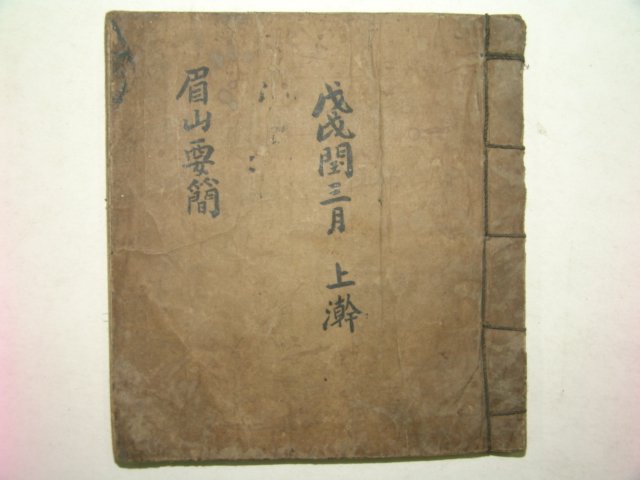 戊戌閏三月 上澣
眉山要簡